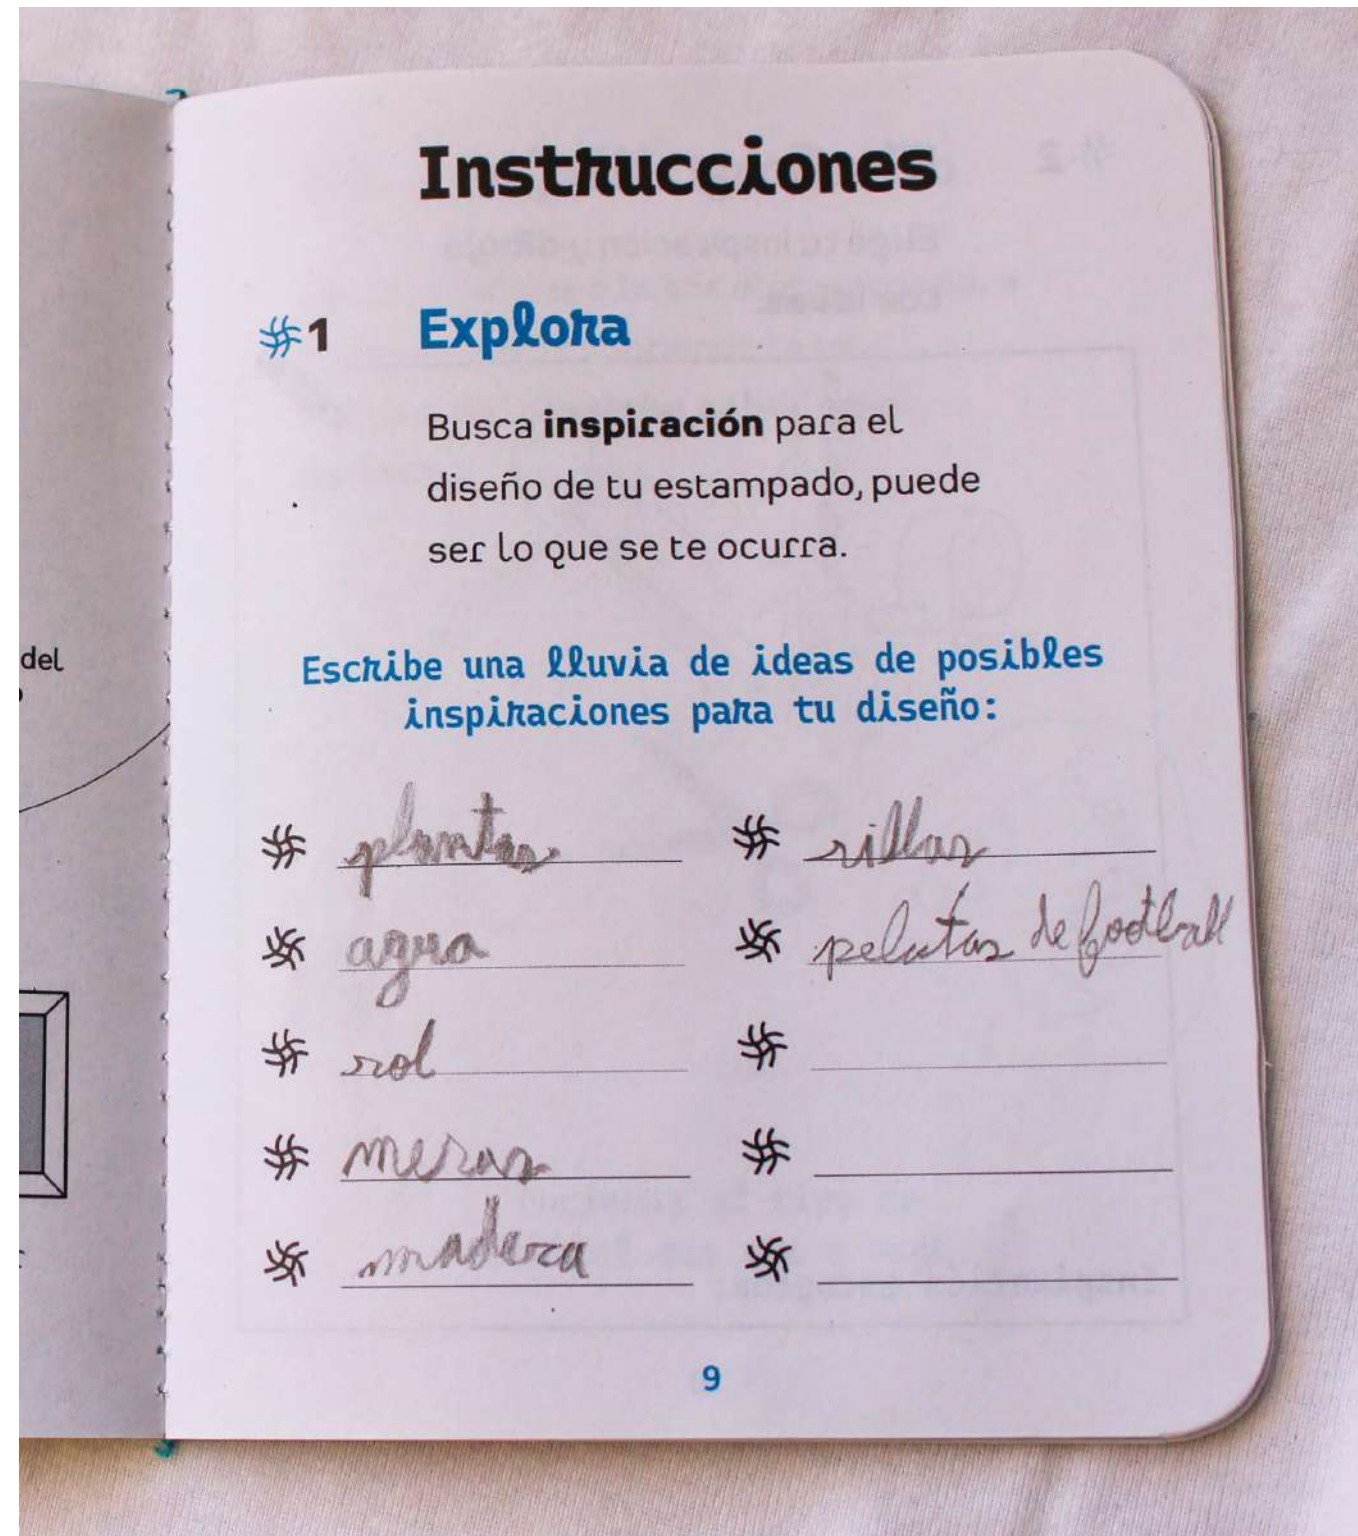 Instrucciones
#1 Explora
Busca inspiración para el
diseño de tu estampado, puede
ser lo que se te ocurra.
del
Escribe una lluvia de ideas de posibles
inspiraciones para tu diseño:
plantas
agua
sol
mesas
madera
sillas
pelotas de football
9